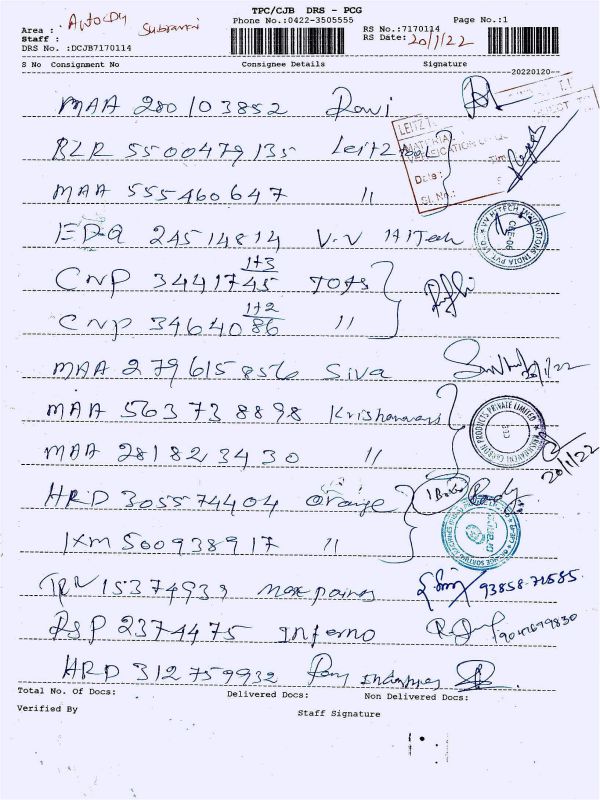 TPC/CJB DRS - PCG
Area : Autocdy Phone No.:0422-3505555 RS No.:7170114 Page No.:1
Staff : Subramani RS Date: 20/1/22
DRS No. :DCJB7170114
S No Consignment No Consignee Details Signature
20220120
MAA 280103852 Ravi
BLR 5500479135 Leitz Tool
MAA 555460647 "
EDQ 24514814 V.V HITech
1+3
CNP 3441745 TOTS
1+2
CNP 3464086 "
MAA 279615856 Siva 20/1/22
MAA 563738898
MAA 281823430 " 20/1/22
HRD 305574404 Orange 1 Box
IXM 500938917 "
15374939 93858-71585
PSP 2374475 Inferno
HRD 312759932
Total No. Of Docs: Delivered Docs: Non Delivered Docs:
Verified By Staff Signature